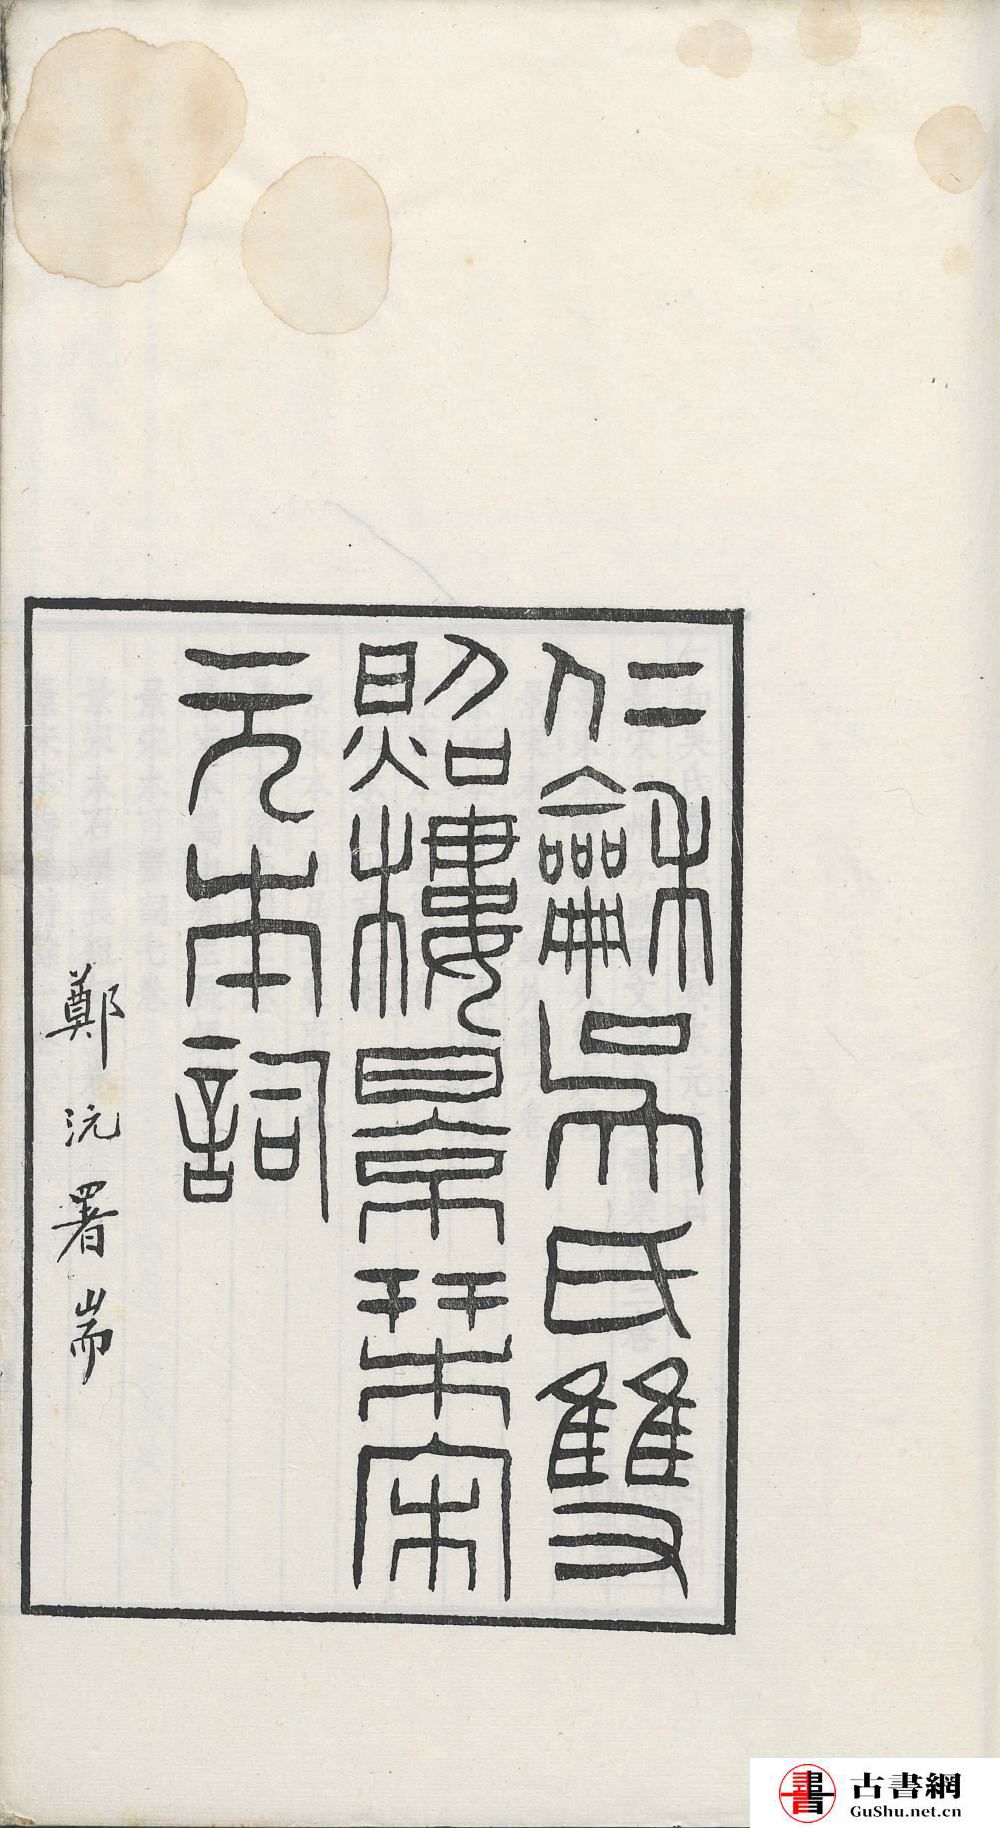 仁龢吳氏雙
照樓景栞宋
元本詞
鄭沅署耑
古書網
GuShu.net.cn